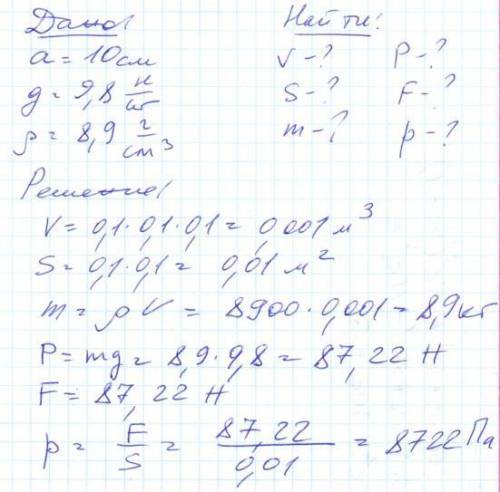 Дано! Найти:
a = 10 см V - ? P - ?
g = 9,8 н/кг S - ? F - ?
ρ = 8,9 г/см³ m - ? p - ?
Решение!
V = 0,1 · 0,1 · 0,1 = 0,001 м³
S = 0,1 · 0,1 = 0,01 м²
m = ρV = 8900 · 0,001 = 8,9 кг
P = mg = 8,9 · 9,8 = 87,22 Н
F = 87,22 Н
p = F/S = 87,22/0,01 = 8722 Па